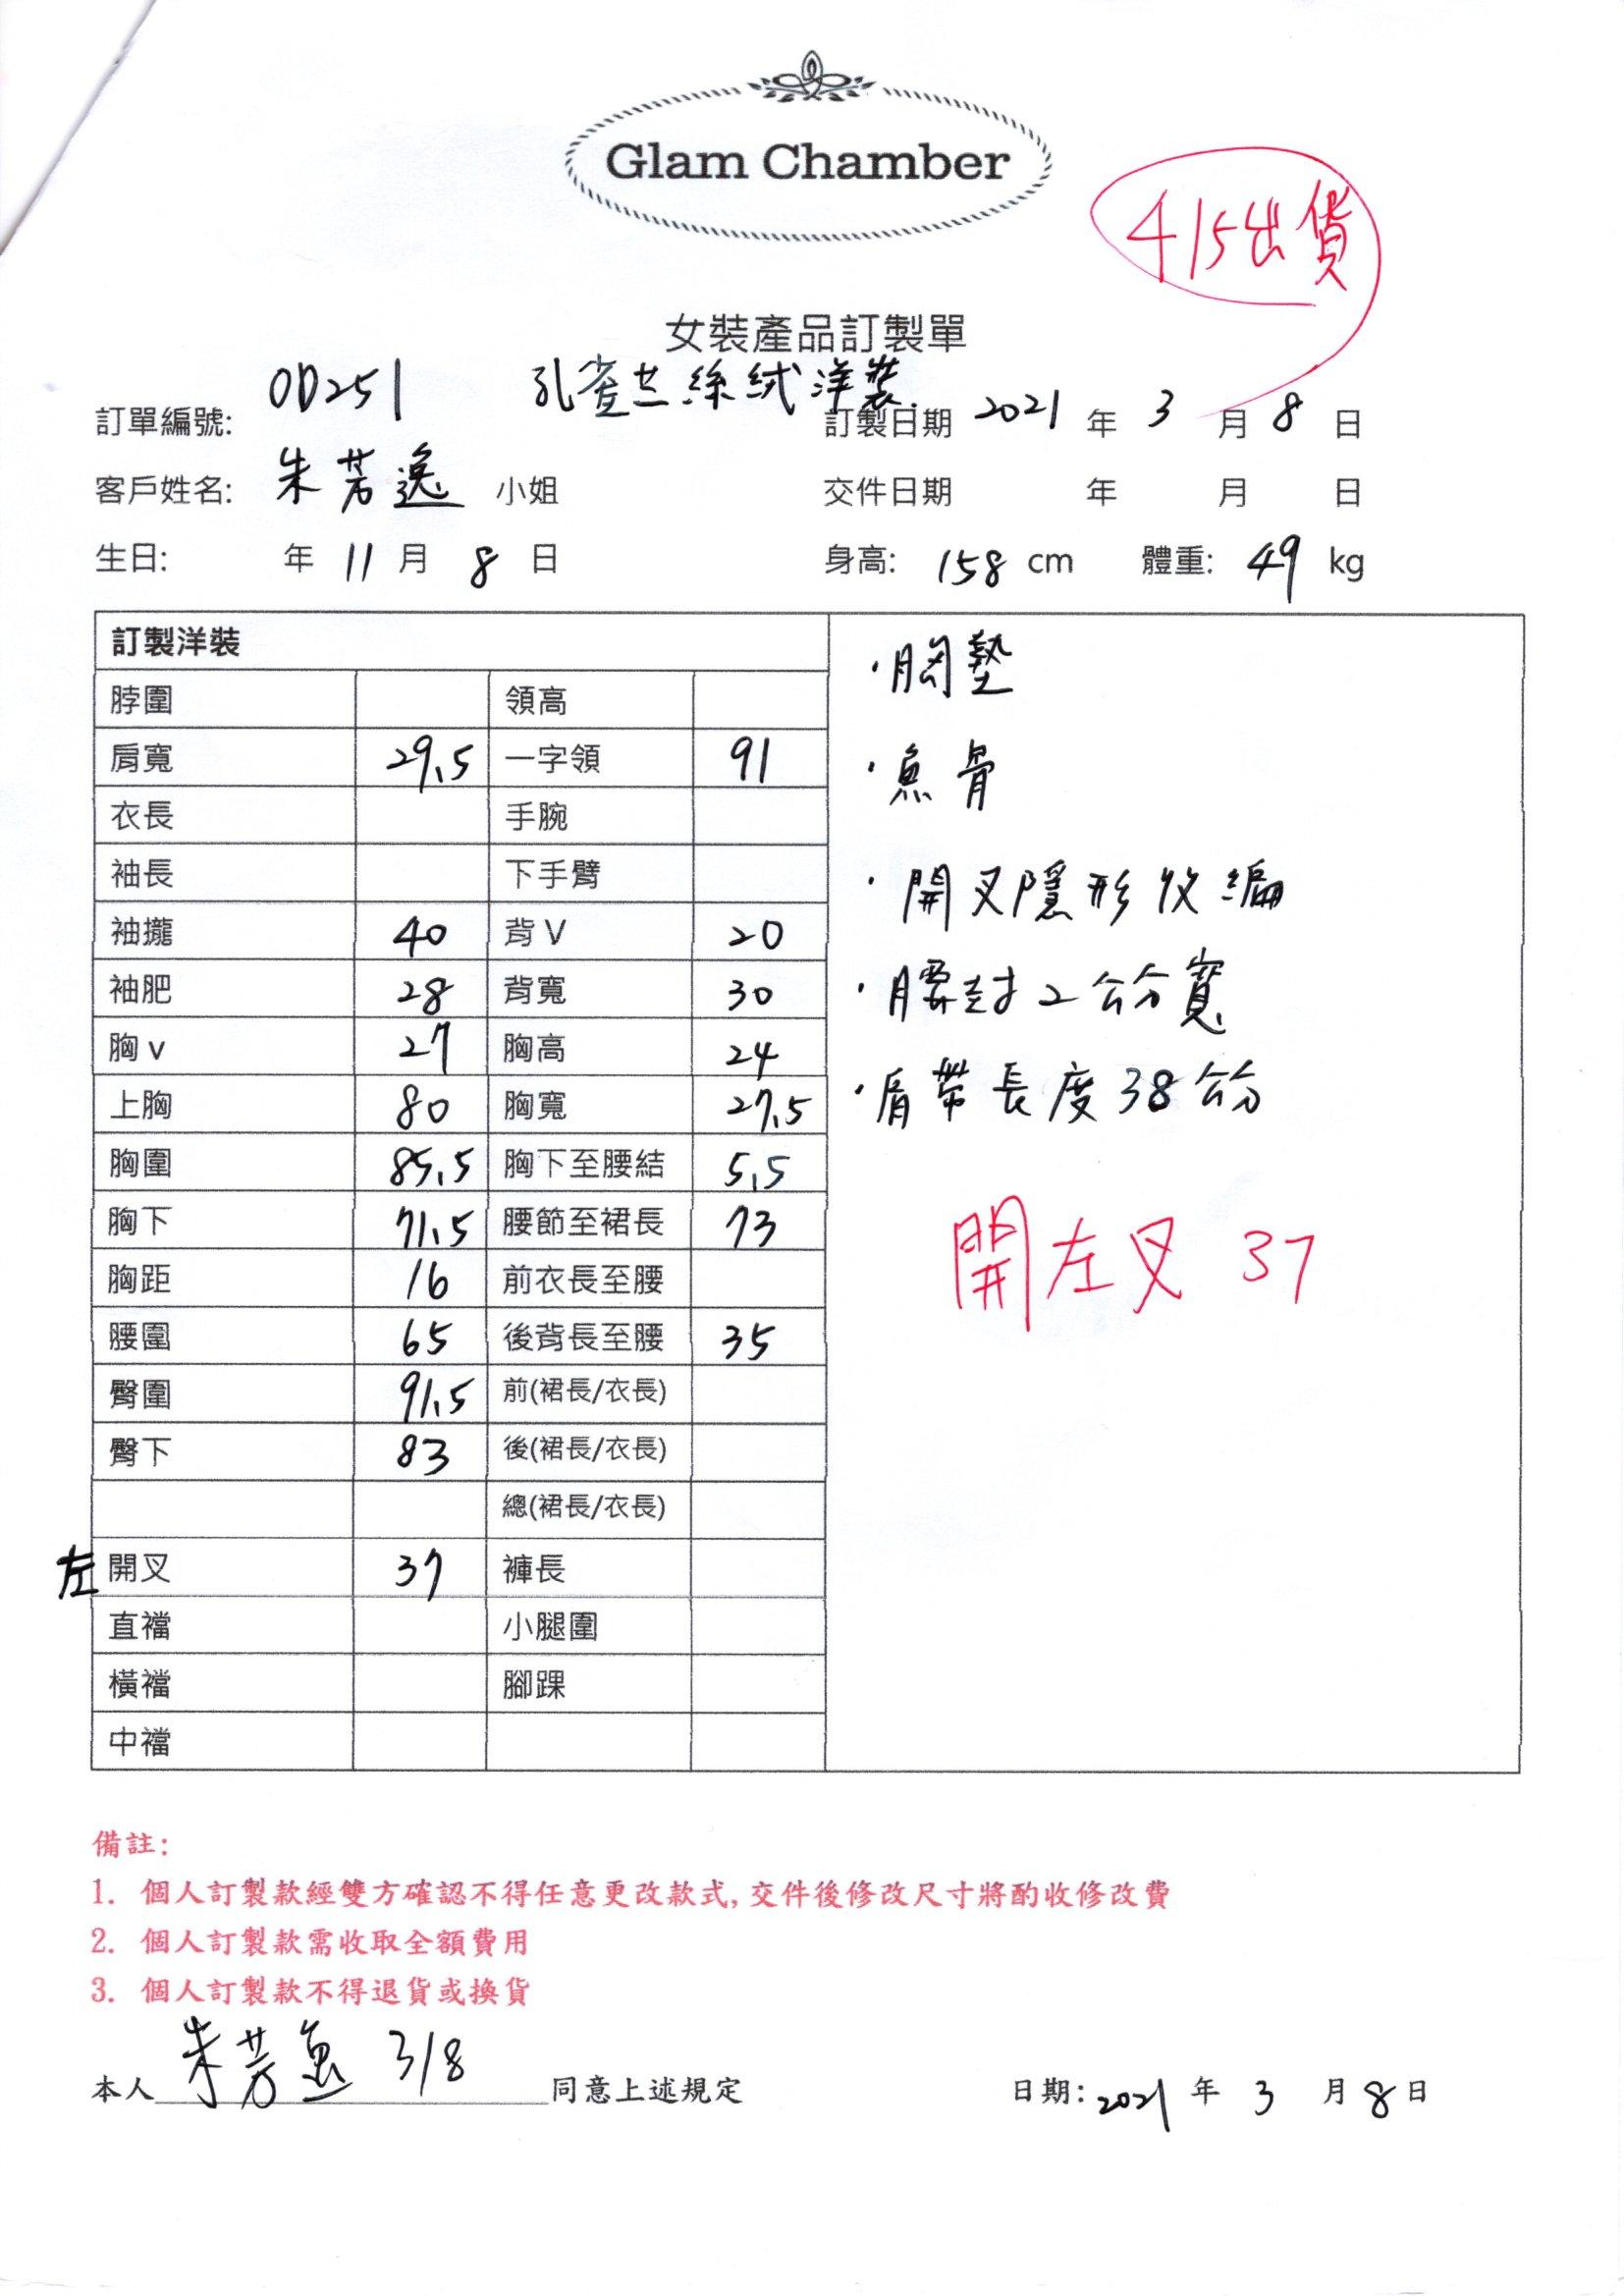 Glam Chamber
4/5出貨
女裝產品訂製單
訂單編號: OD251 孔雀兰絲絨洋裝. 訂製日期 2021 年 3 月 8 日
客戶姓名: 朱芳逸 小姐 交件日期 年 月 日
生日: 年 11 月 8 日 身高: 158 cm 體重: 49 kg
訂製洋裝
脖圍 領高
肩寬 29.5 一字領 91
衣長 手腕
袖長 下手臂
袖攏 40 背 V 20
袖肥 28 背寬 30
胸 v 27 胸高 24
上胸 80 胸寬 27.5
胸圍 85.5 胸下至腰結 5.5
胸下 71.5 腰節至裙長 73
胸距 16 前衣長至腰
腰圍 65 後背長至腰 35
臀圍 91.5 前(裙長/衣長)
臀下 83 後(裙長/衣長)
總(裙長/衣長)
左 開叉 37 褲長
直襠 小腿圍
橫襠 腳踝
中襠
·胸墊
·魚骨
·開叉隱形收編
·腰封2公分寬
·肩帶長度38公分
開左叉 37
備註:
1. 個人訂製款經雙方確認不得任意更改款式,交件後修改尺寸將酌收修改費
2. 個人訂製款需收取全額費用
3. 個人訂製款不得退貨或換貨
本人 朱芳逸 3/8 同意上述規定 日期: 2021 年 3 月 8 日